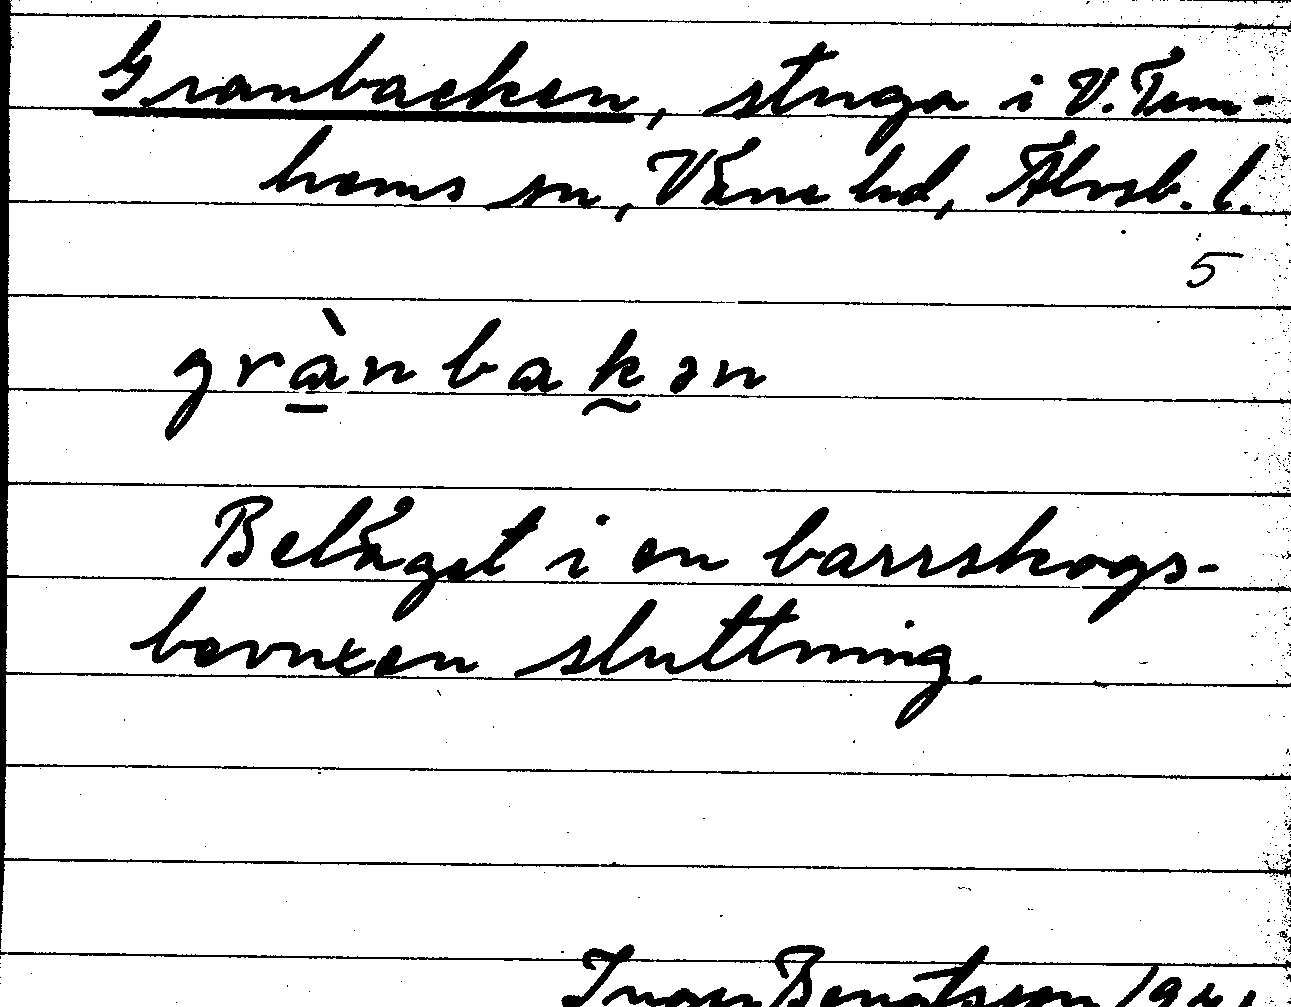 Granbacken, stuga i V. Tun-
hems sn, Väne hd, Älvsb. l.
5
grànbakən
Beläget i en barrskogs-
bevuxen sluttning.
Ivar Bengtsson